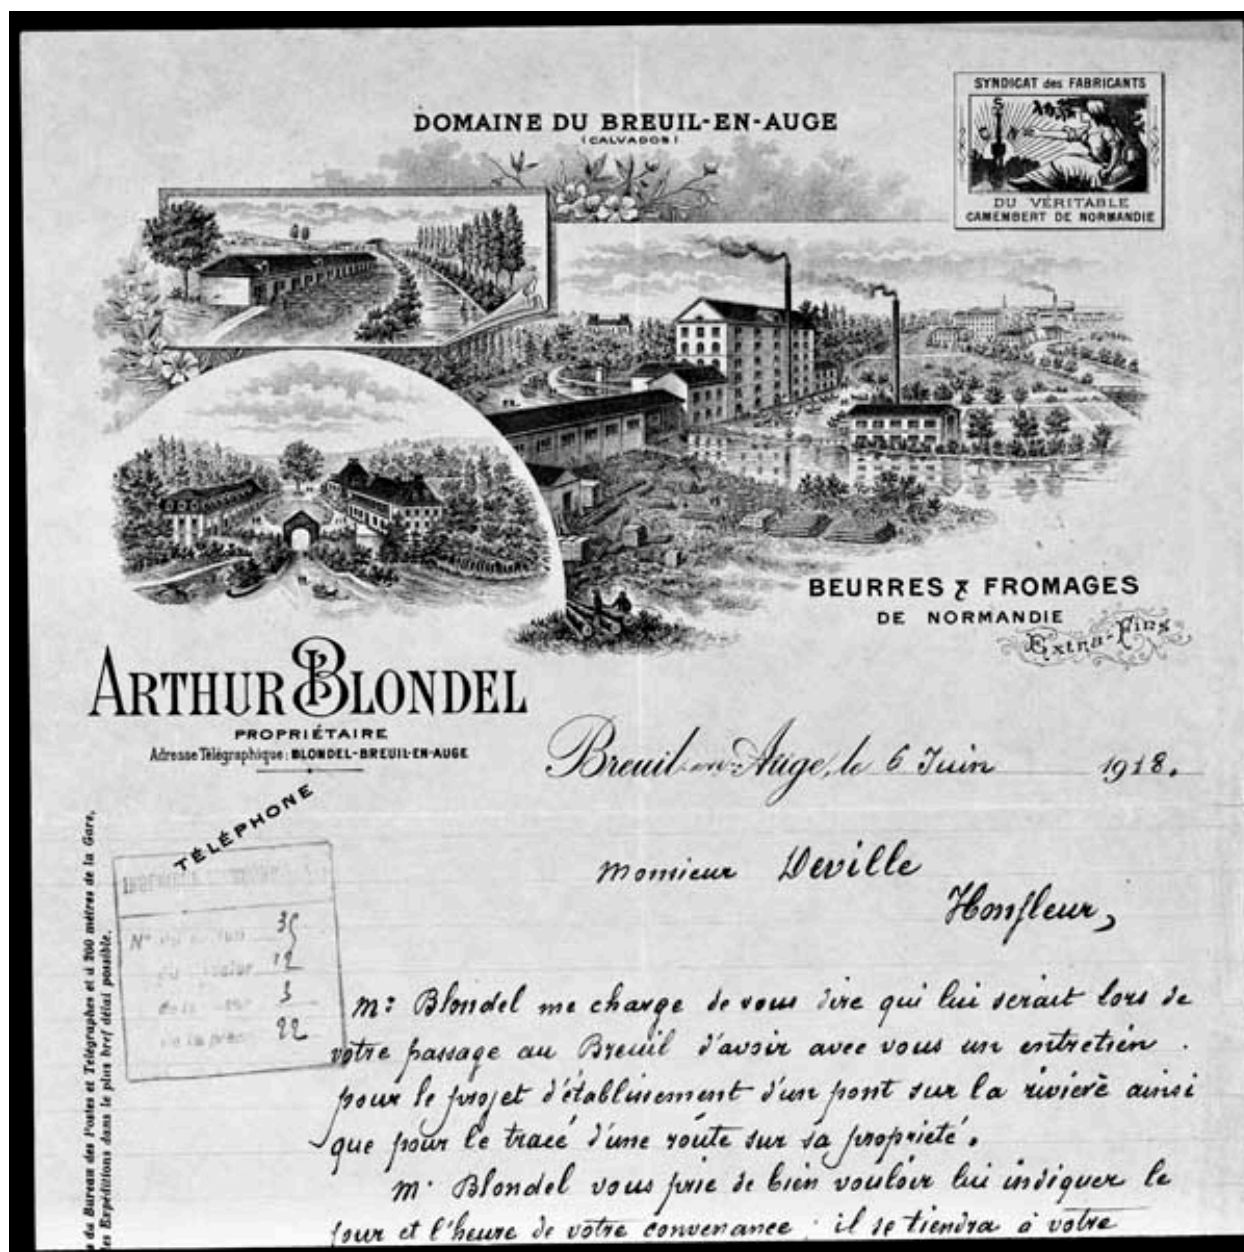 SYNDICAT des FABRICANTS
DU VÉRITABLE
CAMEMBERT DE NORMANDIE
DOMAINE DU BREUIL-EN-AUGE
(CALVADOS)
BEURRES & FROMAGES
DE NORMANDIE
Extra-Fins
ARTHUR BLONDEL
PROPRIÉTAIRE
Adresse Télégraphique: BLONDEL-BREUIL-EN-AUGE
Breuil-en-Auge, le 6 Juin 1918.
TÉLÉPHONE
35
12
3
22
du Bureau des Postes et Télégraphes et à 200 mètres de la Gare,
les Expéditions dans le plus bref délai possible.
Monsieur Deville
Honfleur,
Mr Blondel me charge de vous dire qui lui serait lors de
votre passage au Breuil d'avoir avec vous un entretien
pour le projet d'établissement d'un pont sur la rivière ainsi
que pour le tracé d'une route sur sa propriété.
Mr Blondel vous prie de bien vouloir lui indiquer le
jour et l'heure de votre convenance ; il se tiendra à votre